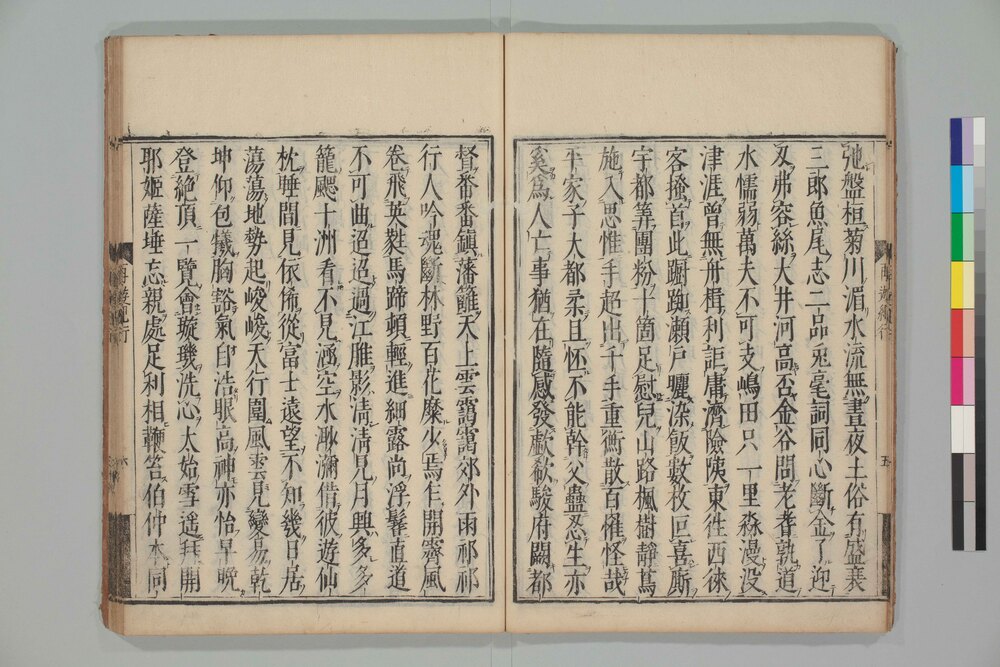 弛盤桓菊川湄水流無晝夜土俗有盛衰
三郎魚尾志二品兎毫詞同心斷金了迎
刄弗容絲大井河高否金谷問老耆孰道
水懦弱萬夫不可支嶋田只一里淼漫没
津涯曾無舟楫利詎庸濟險陦東徃西徠
客掻首此踟蹰瀬戸驪染飯數枚叵喜斷
宇都筭團粉十箇足慰兒山路楓樹靜蔦
施入思惟手超出千手重衡散百慛怪哉
平家子大都柔且怀不能幹父蠱忍生亦
奚爲人亡事猶在隨感發歔欷駿府闢都
督番番鎭藩籬天上雲靄靄郊外雨祁祁
行人吟魂斷林野百花糜少焉乍開霽風
卷飛英麩馬蹄頓輕進細露尚浮髦直道
不可曲迢迢過江脽影清清見月興多多
籠颸十洲看不見涵空水渺瀰借彼遊仙
枕睡間見依俙從富士遠望不知幾日居
蕩蕩地勢起峻峻天行圍風雲見變易乾
坤仰包犧胸豁氣自浩眼高神亦怡早晩
登絶頂一覽會璇璣洗心太始雪遥開
耶姫薩埵忘親處足利相鞭笞伯仲本同
五
六